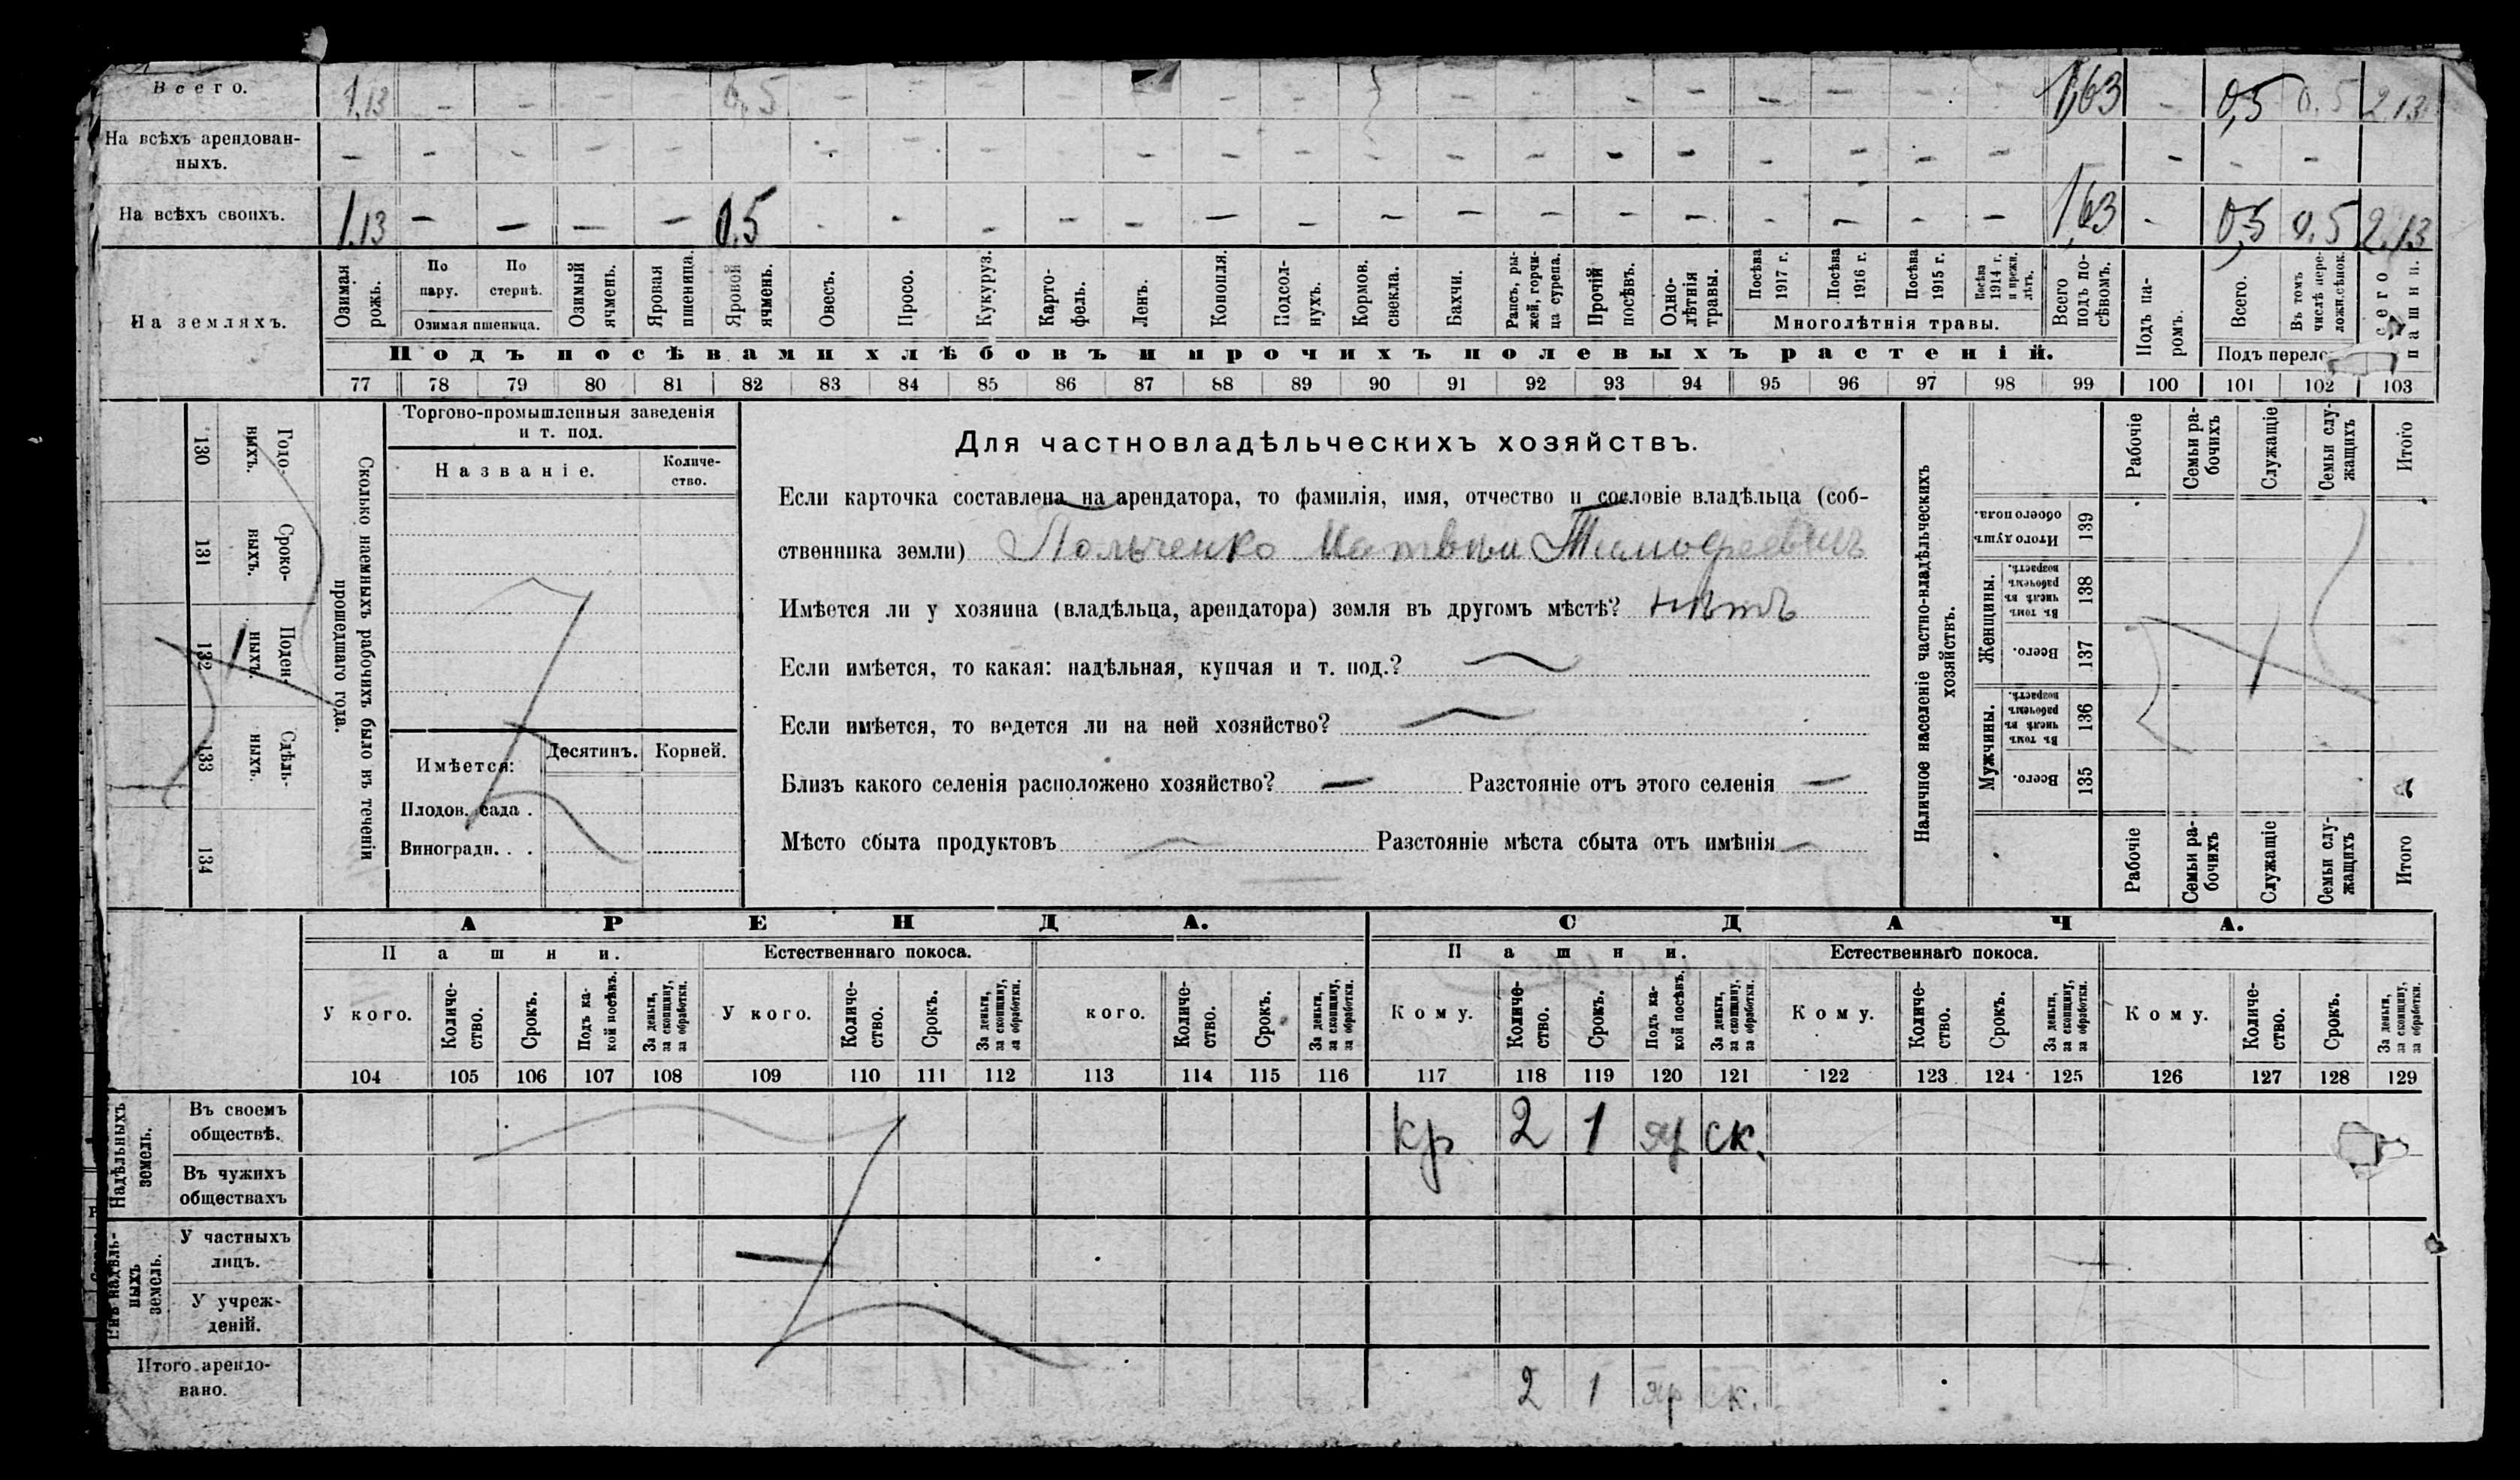 Всего. 1.13 - - - - 0.5 - - - - - - - - - - - - - - 1,63 - 0,5 0.5 2.13
На всѣхъ арендован-
ныхъ. - - - - - - - - - - - - - - - - - - - - - - - - -
На всѣхъ своихъ. 1.13 - - - - 0.5 - - - - - - - - - - - - - - - - 1,63 - 0,5 0.5 2.13
На земляхъ.
Озимая рожь.
По пару.
По стернѣ.
Озимая пшеница.
Озимый ячмень.
Яровая пшеница.
Яровой ячмень.
Овесъ.
Просо.
Кукуруз.
Карто-
фель.
Ленъ.
Конопля.
Подсол-
нухъ.
Кормов. свекла.
Бахчи.
Рапсъ, ры-
жей, горчи-
ца сурепа.
Прочій посѣвъ.
Одно-
лѣтнія травы.
Посѣва 1917 г.
Посѣва 1916 г.
Посѣва 1915 г.
Посѣва 1914 г. и прежн. лѣтъ.
Многолѣтнія травы.
Всего подъ по-
сѣвомъ.
Подъ па-
ромъ.
Всего.
Въ томъ числѣ пере-
ложн.сѣнок.
Подъ перело
сего пашни.
Подъ посѣвами хлѣбовъ и прочихъ полевыхъ растеній.
77 78 79 80 81 82 83 84 85 86 87 88 89 90 91 92 93 94 95 96 97 98 99 100 101 102 103
130 131 132 133 134
Годо-
выхъ.
Сроко-
выхъ.
Поден-
ныхъ.
Сдѣль-
ныхъ.
Сколько наемныхъ рабочихъ было въ теченіи
прошедшаго года.
Торгово-промышленныя заведенія
и т. под.
Названіе.
Количе-
ство.
Имѣется:
Десятинъ. Корней.
Плодов. сада .
Виноградн. . .
Для частновладѣльческихъ хозяйствъ.
Если карточка составлена на арендатора, то фамилія, имя, отчество и сословіе владѣльца (соб-
ственника земли) Польченко Матвѣй Тимофеевичъ
Имѣется ли у хозяина (владѣльца, арендатора) земля въ другомъ мѣстѣ? нѣтъ
Если имѣется, то какая: надѣльная, купчая и т. под.?
Если имѣется, то ведется ли на ней хозяйство?
Близъ какого селенія расположено хозяйство? - Разстояніе отъ этого селенія -
Мѣсто сбыта продуктовъ Разстояніе мѣста сбыта отъ имѣнія
Наличное населеніе частно-владѣльческихъ
хозяйствъ.
Мужчины.
Женщины.
Всего.
Въ томъ числѣ въ рабочемъ возрастѣ.
Всего.
Въ томъ числѣ въ рабочемъ возрастѣ.
Итого душъ обоего пола.
135 136 137 138 139
Рабочіе
Семьи ра-
бочихъ
Служащіе
Семьи слу-
жащихъ
Итого
Рабочіе
Семьи ра-
бочихъ
Служащіе
Семьи слу-
жащихъ
Итого
АРЕНДА. СДАЧА.
Пашни. Естественнаго покоса. Пашни. Естественнаго покоса.
У кого.
Количе-
ство.
Срокъ.
Подъ ка-
кой посѣвъ.
За деньги,
за скопщину,
за обработки.
У кого.
Количе-
ство.
Срокъ.
За деньги,
за скопщину,
за обработки.
кого.
Количе-
ство.
Срокъ.
За деньги,
за скопщину,
за обработки.
Кому.
Количе-
ство.
Срокъ.
Подъ ка-
кой посѣвъ.
За деньги,
за скопщину,
за обработки.
Кому.
Количе-
ство.
Срокъ.
За деньги,
за скопщину,
за обработки.
Кому.
Количе-
ство.
Срокъ.
За деньги,
за скопщину,
за обработки.
104 105 106 107 108 109 110 111 112 113 114 115 116 117 118 119 120 121 122 123 124 125 126 127 128 129
Надѣльныхъ
земель.
Въ своемъ
обществѣ. кр. 2 1 яр ск.
Въ чужихъ
обществахъ
надѣль-
ныхъ
земель.
У частныхъ
лицъ.
У учреж-
деній.
Итого арендо-
вано. 2 1 яр ск.